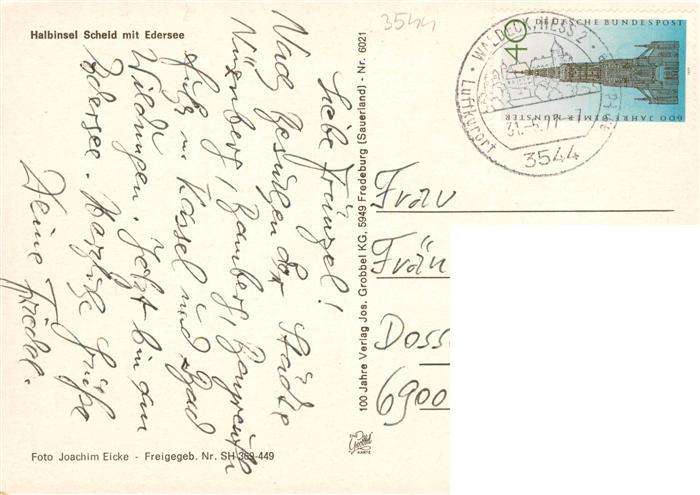 Halbinsel Scheid mit Edersee
3544
Liebe Fränzel!
Nach Besuchen der Städte
Nürnberg, Bamberg, Bayreuth
Fulda u. Kassel und Bad
Wildungen. Jetzt bin am
Edersee. Herzliche Grüße
Deine Friedel.
Foto Joachim Eicke - Freigegeb. Nr. SH 369-449
100 Jahre Verlag Jos. Grobbel KG, 5949 Fredeburg (Sauerland) - Nr. 6021
EINE
Grobbel
KARTE
WALDECK, HESS 2
Luftkurort
31.-5.77-7
3544
40
DEUTSCHE BUNDESPOST
600 JAHRE ULMER MÜNSTER
Frau
Frän
Doss
6900